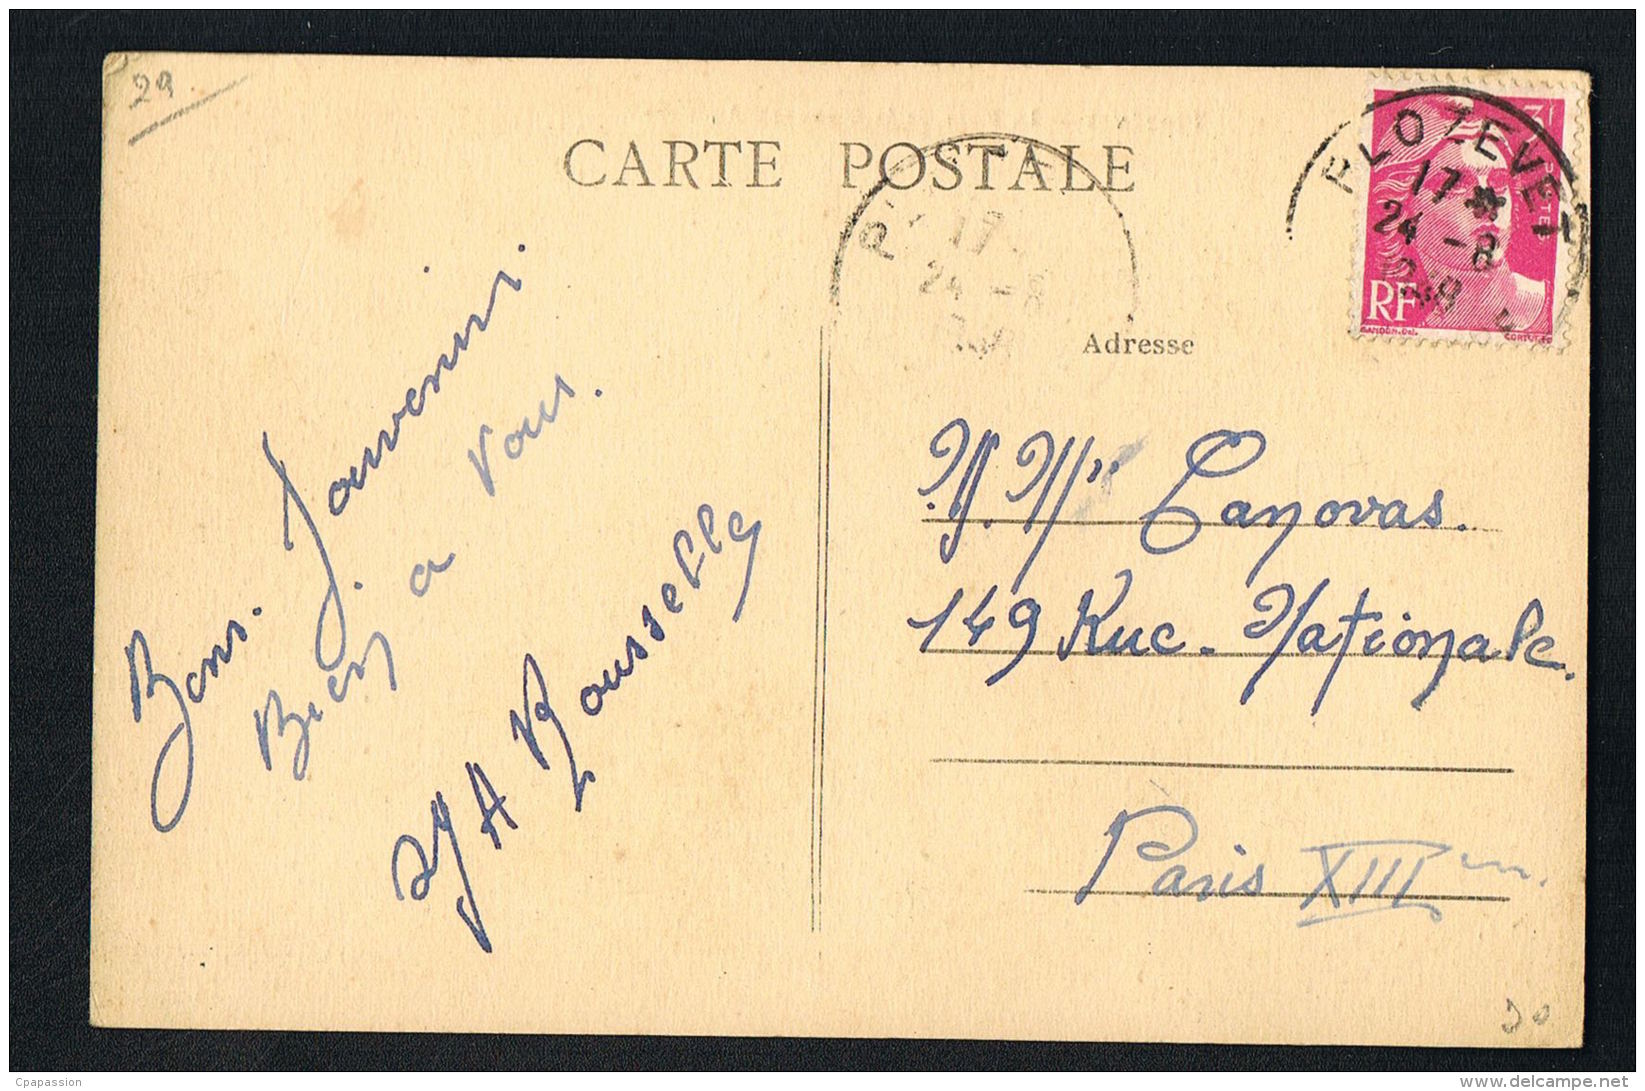 29
CARTE POSTALE
PLOZEVET
17
24 - 8
3f
RF
GANDON.Del.
17
24 - 8
Adresse
Bons. Souvenirs.
Bien a vous.
A Rousselle
M. Mme Canovas.
149 Rue. Nationale.
Paris XIIIm.
30
Cpapassion
www.delcampe.net